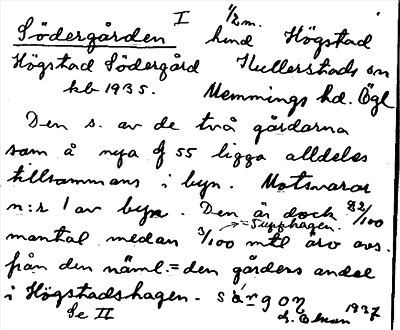 I 1/2 m.
Södergården hmd Högstad
Högstad Södergård Kullerstads sn
kb 1935. Memmings hd. Ögl
Den s. av de två gårdarna
som å nya G 55 ligga alldeles
tillsammans i byn. Motsvarar
n:r 1 av byn. Den är dock 82/100
= Supphagen.
mantal medan 3/100 mtl äro avs.
från den näml. = den gårdens andel
i Högstadshagen. - 1937
Se II